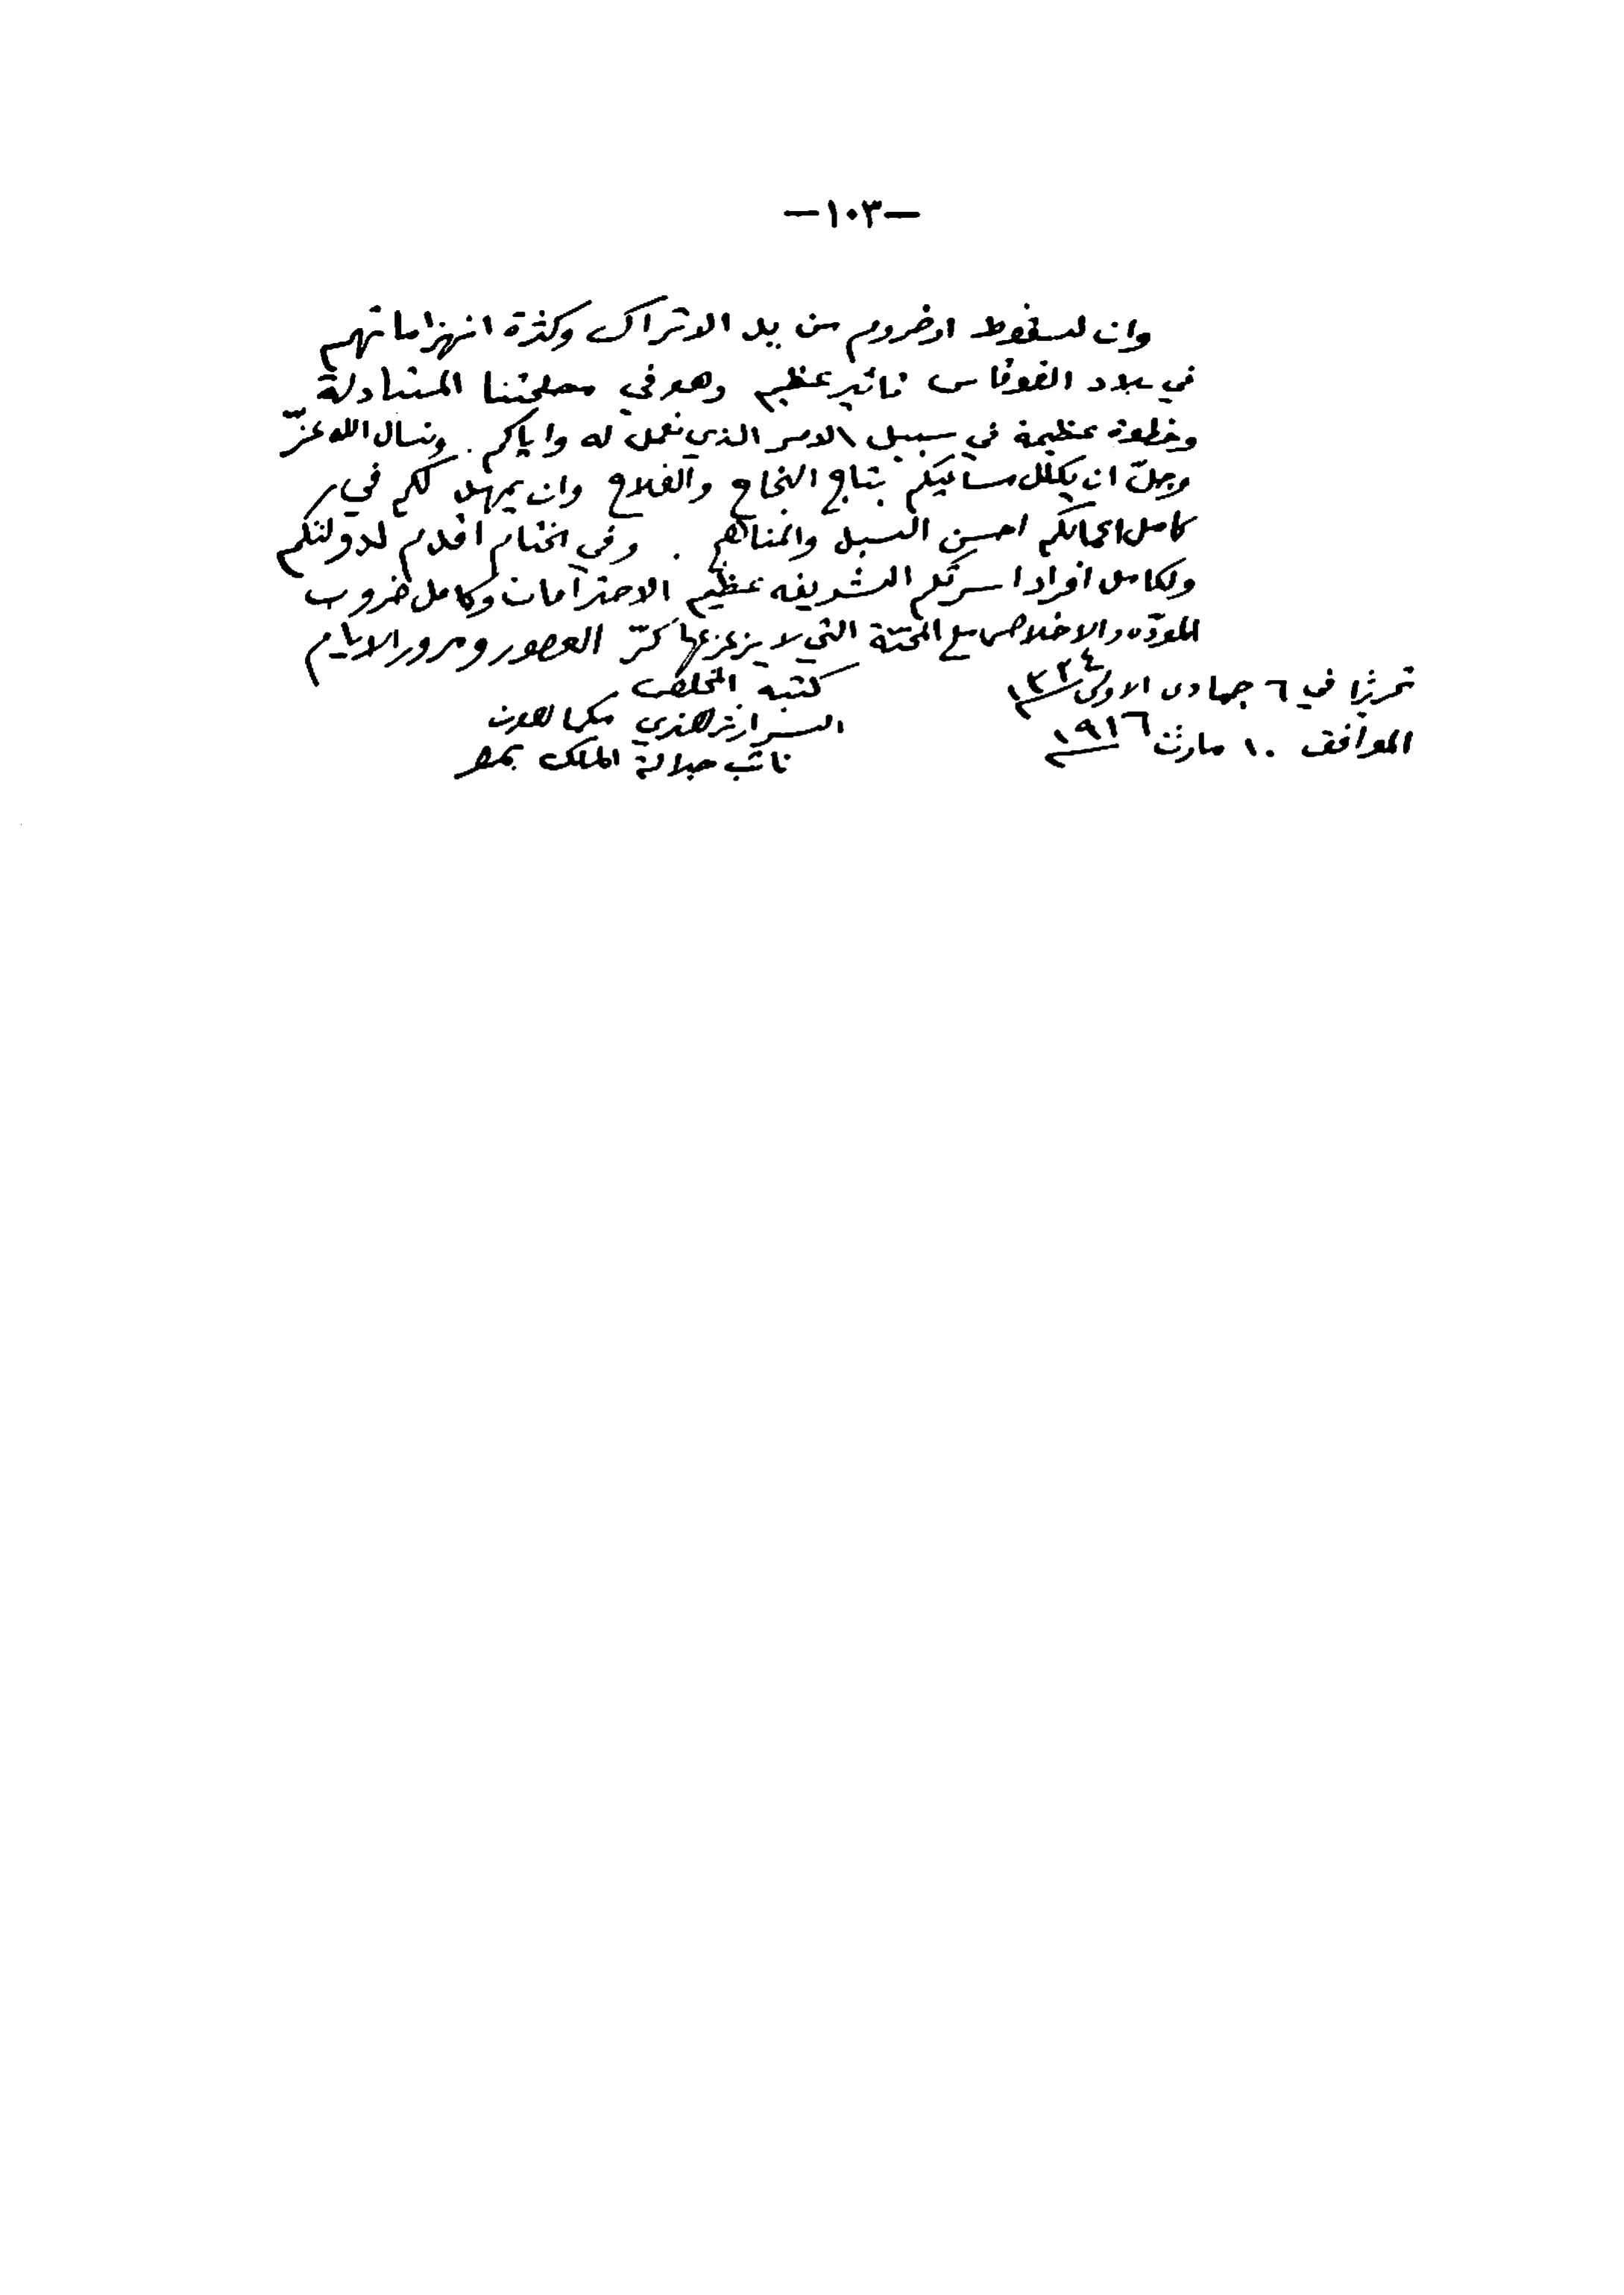 —١٠٣—
وان لسقوط ارضروم من يد الاتراك وكثرة انهزاماتهم
في بلاد القوقاس تاثير عظيم وهو في مصلحتنا المتبادلة
وخطوة عظيمة في سبيل الامر الذي نعمل له واياكم . ونسال الله عزّ
وجلّ ان يكلل مساعيكم بتاج النجاح والفلاح وان يمهد لكم في
كامل اعمالكم احسن السبل والمناهج . وفي الختام اقدم لدولتكم
ولكامل افراد اسرتكم الشريفه عظيم الاحترامات وكامل ضروب
المودّه والاخلاص مع المحبّة التي لا يزعزعها كرّ العصور ومرور الايام
تحريرًا في ٦ جمادى الاولى ١٣٣٤
الموافق ١٠ مارث ١٩١٦
كتبه المخلص
السر ارثر هنري مكماهون
نائب جلالة الملك بمصر